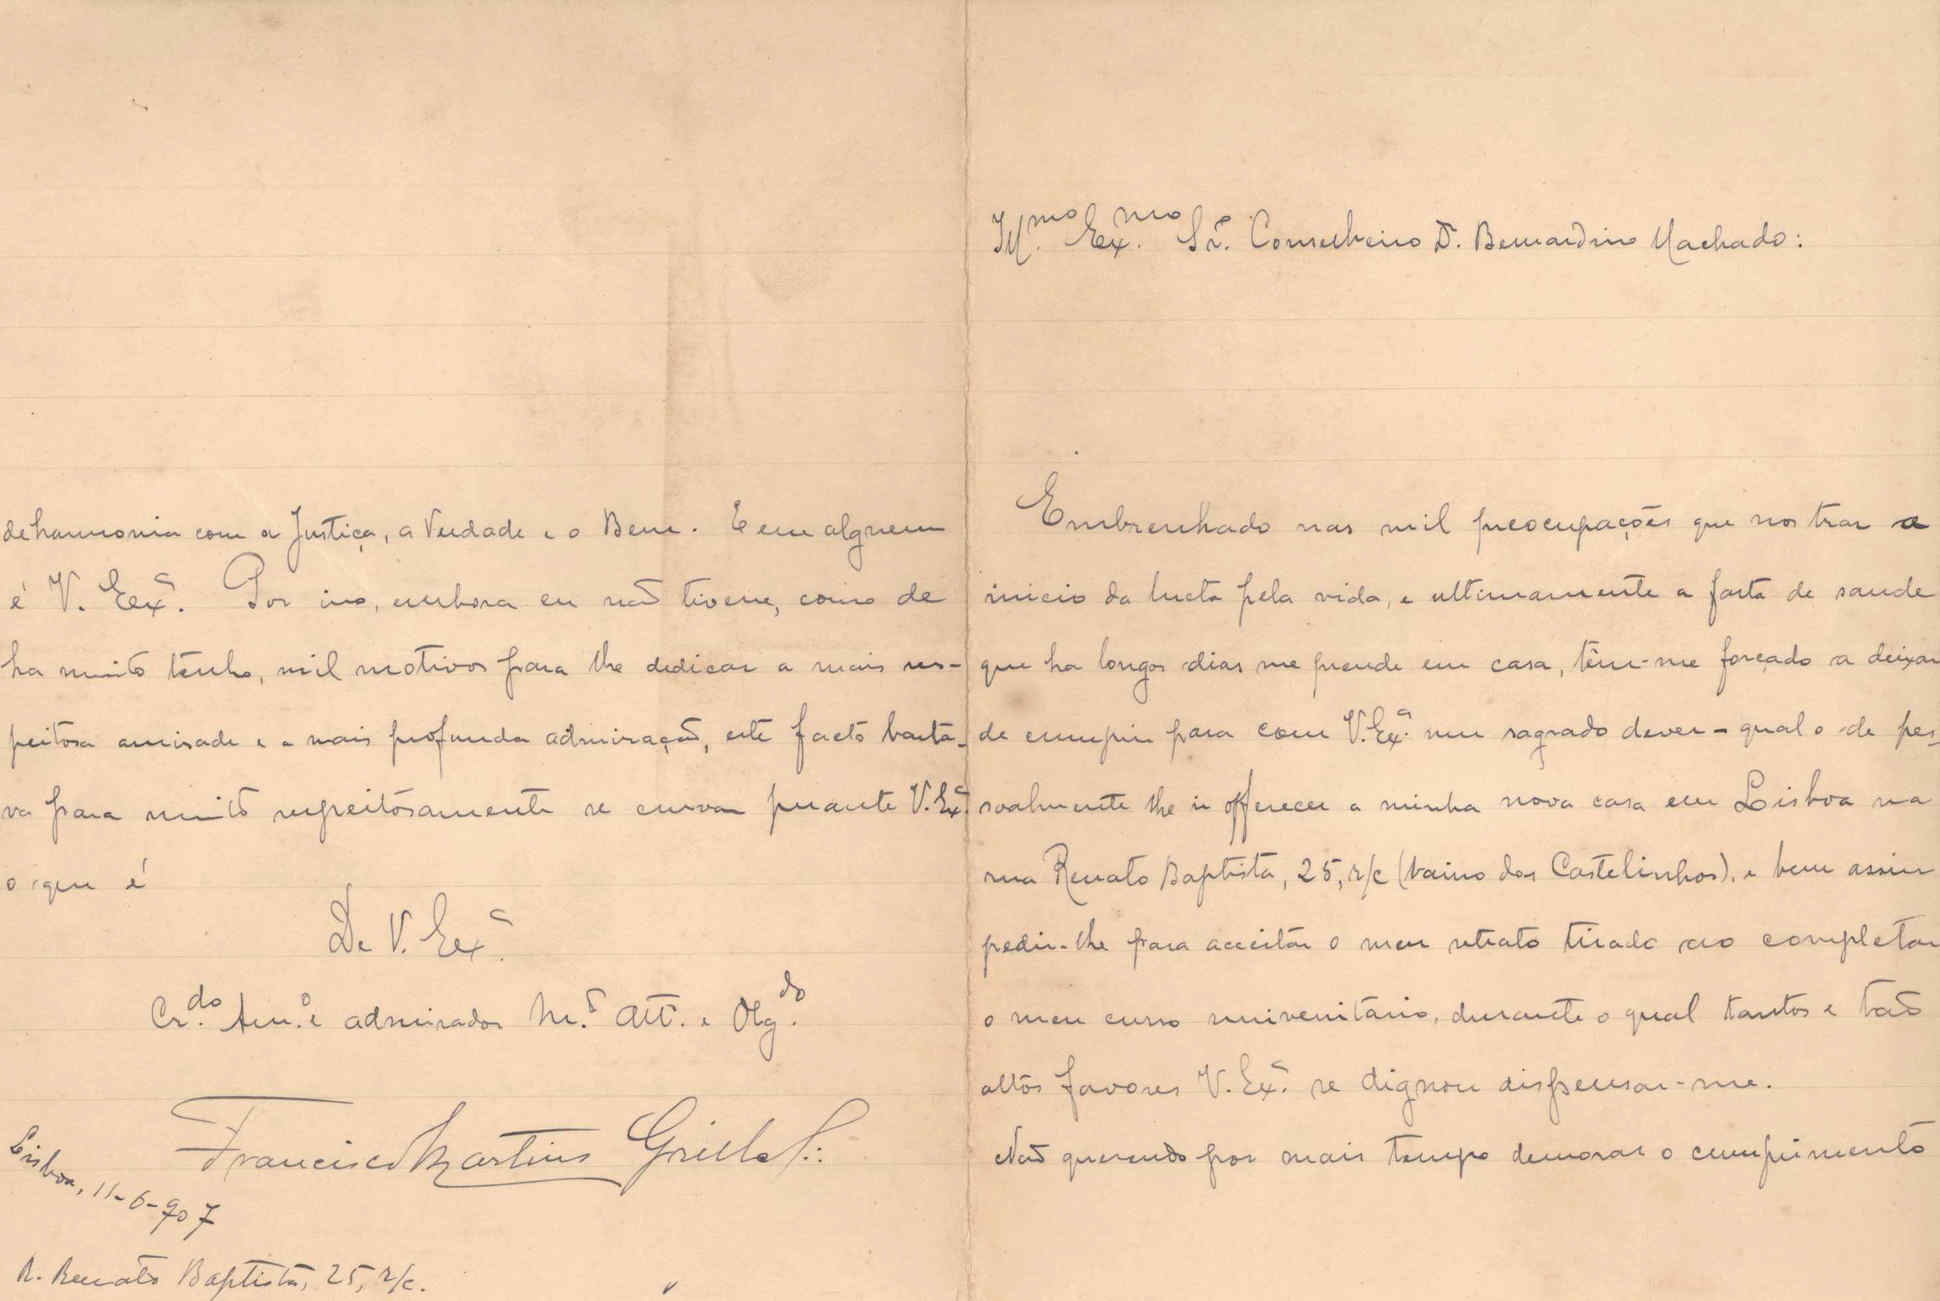 Ill.mo Ex.mo Sr. Conselheiro Dr. Bernardino Machado:
Embrenhado nas mil preocupações que nos traz o
inicio da lucta pela vida, e ultimamente a falta de saude
que ha longos dias me prende em casa, têm-me forçado a deixar
de cumprir para com V. Ex.ª um sagrado dever - qual o de pes-
soalmente lhe ir offerecer a minha nova casa em Lisboa na
rua Renato Baptista, 25, r/c (bairro dos Castelinhos), e bem assim
pedir-lhe para acceitar o meu retrato tirado ao completar
o meu curso universitário, durante o qual tantos e tão
altos favores V. Ex.ª se dignou dispensar-me.
Não querendo por mais tempo demorar o cumprimento
de harmonia com a Justiça, a Verdade e o Bem. E em alguem
é V. Ex.ª. Por isso, embora eu não tivesse, como de
ha muito tenho, mil motivos para lhe dedicar a mais res-
peitosa amisade e a mais profunda admiração, este facto basta-
va para muito respeitósamente se curvar perante V. Ex.ª
o que é
De V. Ex.ª
Cr.do Am.º e admirador M.to Att.º e Obg.do
Francisco Martins Grillo
Lisboa, 11-6-907
R. Renato Baptista, 25, r/c.